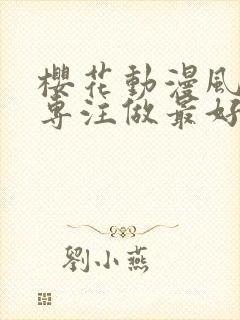 櫻花動漫風
專注做最好
劉小燕